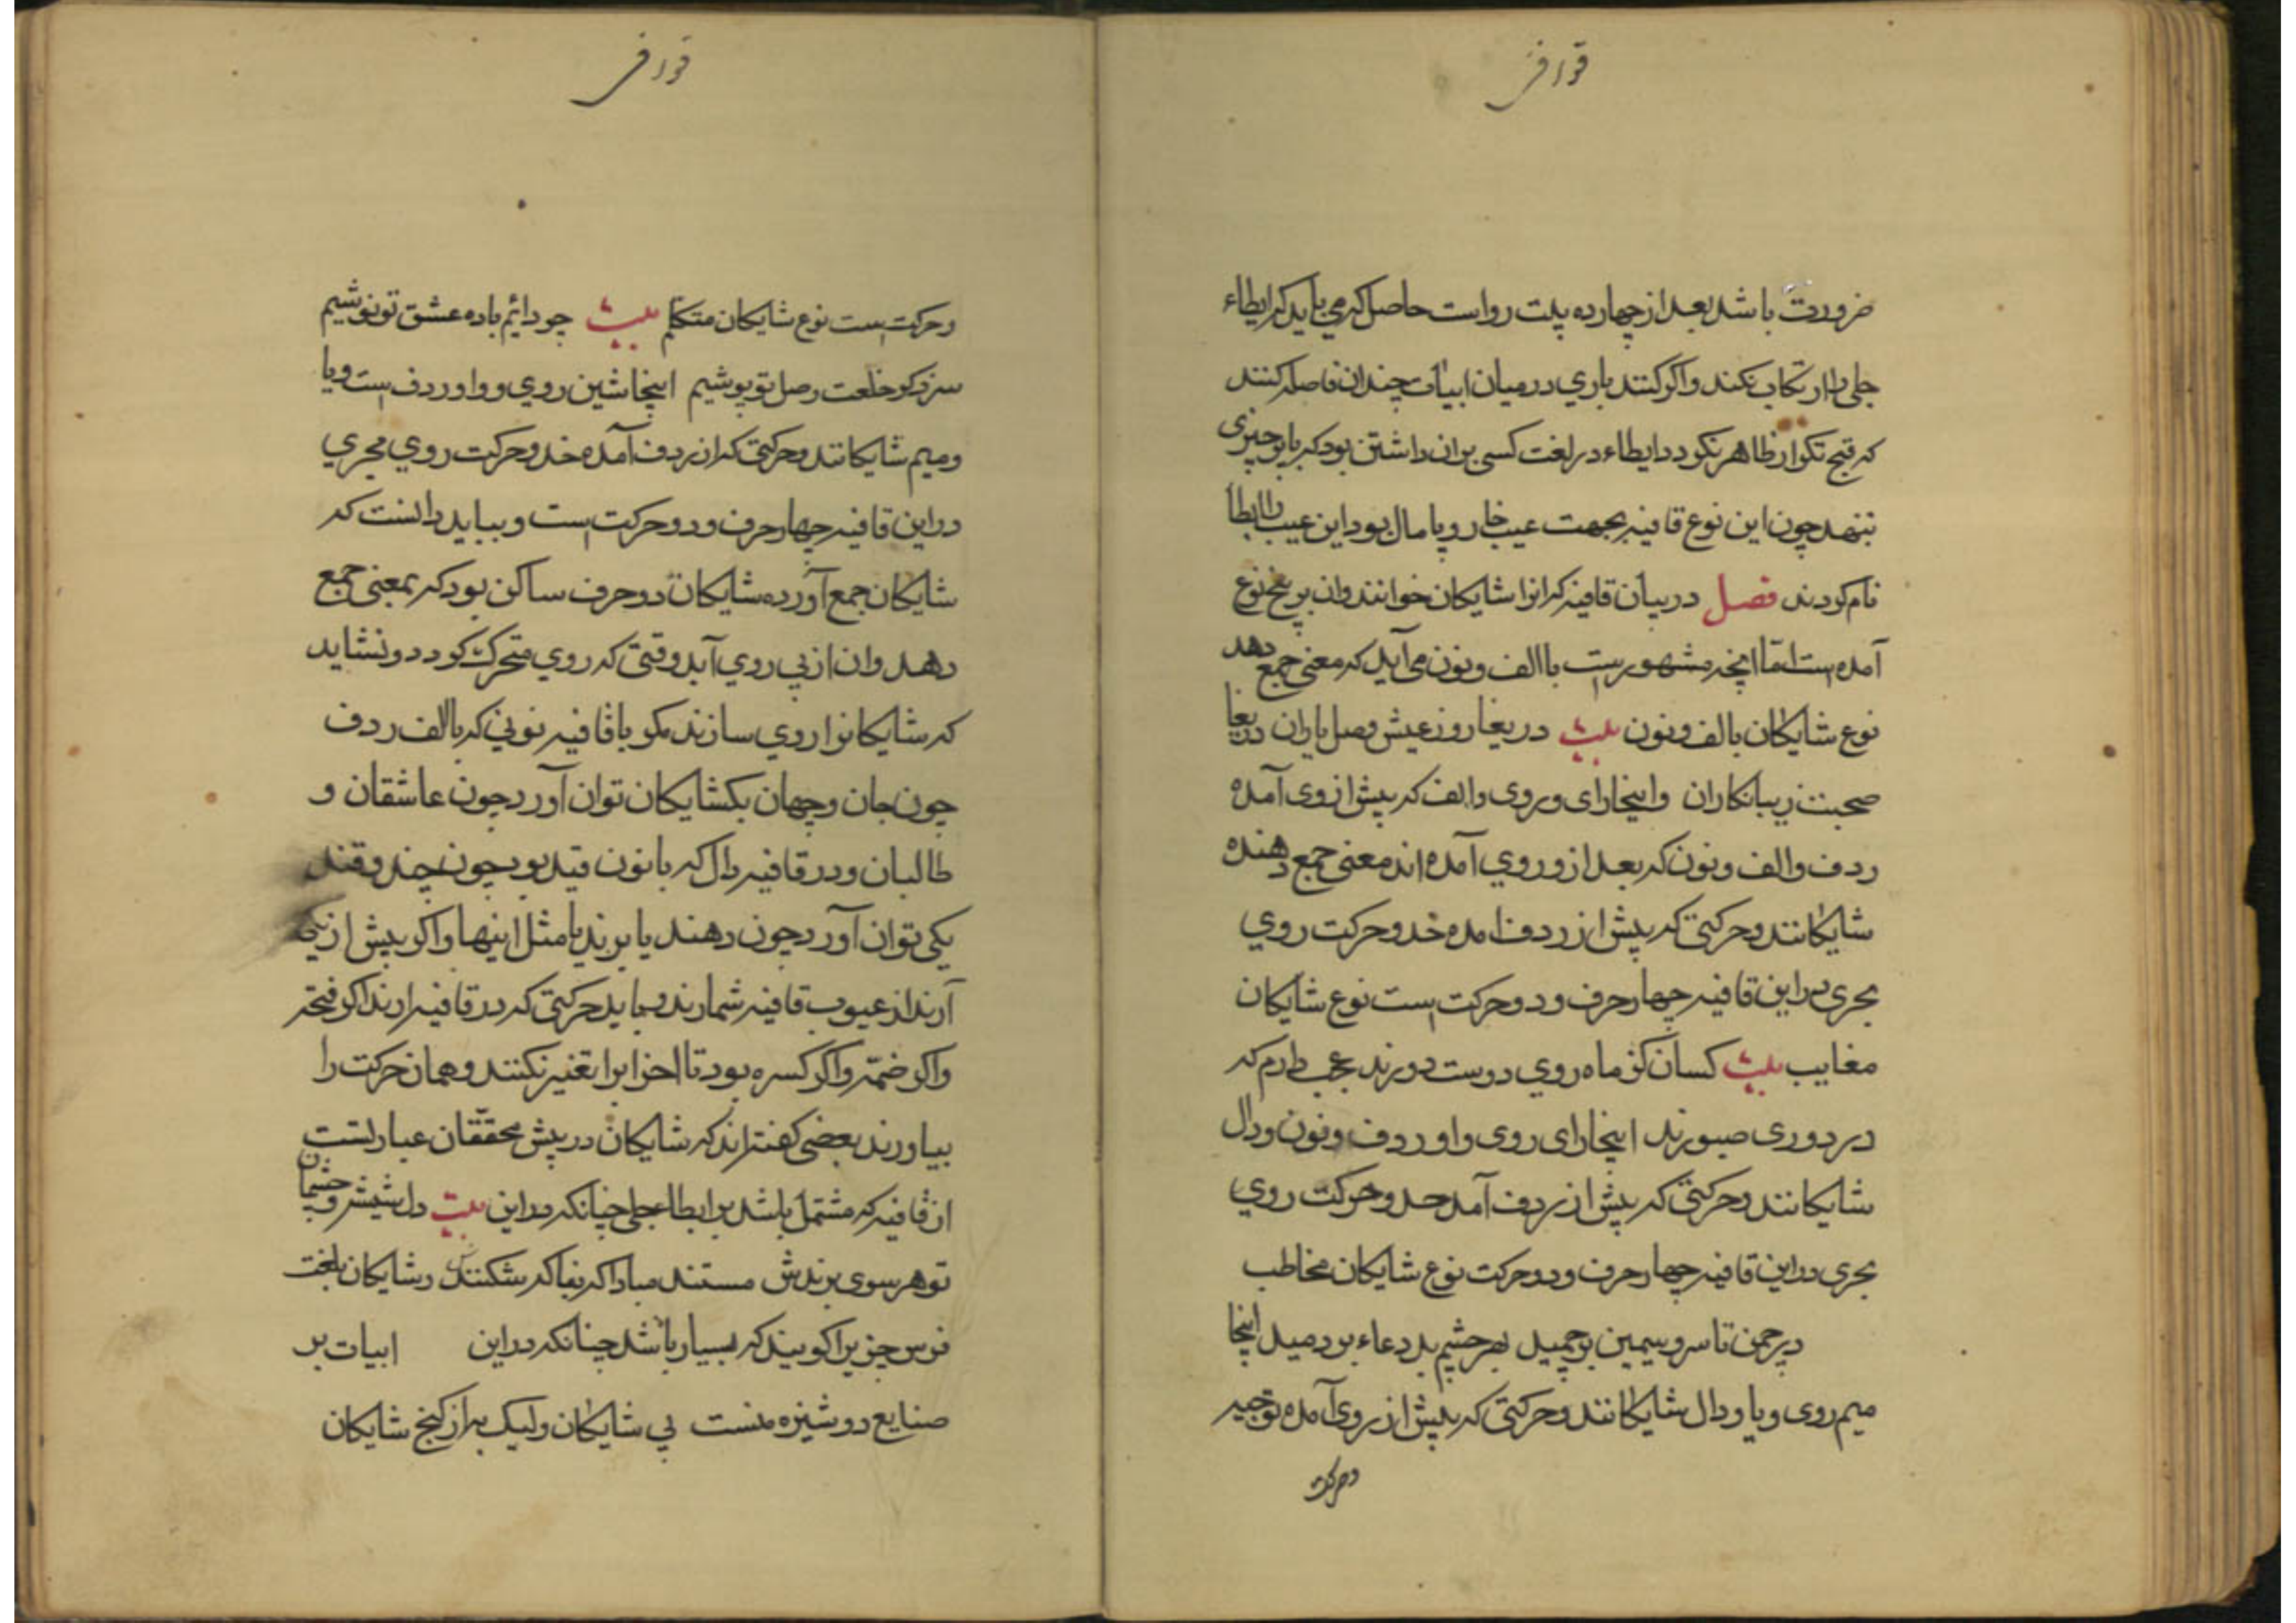 قوافی
ضرورت باشد بعد از چهارده بیت رواست حاصل که می باید که ایطاء
جلی را ارتکاب نکنند واکر کنند باری در میان ابیات چندان فاصله کنند
که قبح تکرار ظاهر نکردد و ایطاء در لغت کسی بران داشتن بود که پا بر چیزی
بنهد چون این نوع قافیه بجهت عیب خار و پامال بود این عیب را ایطا
نام کردند فصل در بیان قافیه که انرا شایکان خوانند وان بر پنج نوع
آمده است امّا انچه مشهورست باالف ونون می آید که معنی جمع دهد
نوع شایکان بالف ونون بیت دریغا روز عیش وصل یاران دریغا
صحبت زیبانکاران واینجا رای وروی والف که پیش از وی آمده
ردف والف ونون که بعد از وروی آمده اند معنی جمع دهنده
شایکانند وحرکتی که پیش از ردف امده خد وحرکت روي
بجری در این قافیه چهار حرف ودو حرکت است نوع شایکان
مغایب بیت کسان کز ماه روي دوست دورند عجب دارم که
در دوری صبورند اینجا رای روی واو ردف ونون ودال
شایکانند وحرکتی که پیش از ردف آمد حد وحرکت روي
بجری در این قافیه چهار حرف ودو حرکت نوع شایکان مخاطب
در چمن تا سرو سیمین بر چمید بهر چشم بد دعاء بر دمید اینجا
میم روی ویا ودال شایکانند وحرکتی که پیش از روی آمده توجیه
وحرکت
قوافی
وحرکت است نوع شایکان متکلم بیت چو دائم باده عشق تو نوشیم
سزد کر خلعت وصل تو پوشیم اینجا شین روي وواو ردف است ویا
ومیم شایکانند وحرکتی که از ردف آمده خد وحرکت روي مجري
در این قافیه چهار حرف ودو حرکت است وبباید دانست که
شایکان جمع آورده شایکان دو حرف ساکن بود که بمعنی جمع
دهد وان از پی روي آید وقتی که روي متحرک کردد ونشاید
که شایکانرا روي سازند مکر باقافیه نونی که بالف ردف
چون جان وجهان یکشایکان توان آورد چون عاشقان و
طالبان ودر قافیه دال که بانون قید بود چون چند وقند
یکی توان آورد چون دهند یا برند یا مثل اینها واکر بیش از یکی
آرند از عیوب قافیه شمارند وبباید حرکتی که در قافیه ارند اکر فتحه
واکر ضمّه واکر کسره بود تا اخر انرا تغییر نکنند وهمان حرکت را
بیاورند بعضی کفته اند که شایکان در پیش محققان عبارتست
از قافیه که مشتمل باشد بر ایطاء جلی چنانکه در این بیت دل شیشه وچشمان
تو هر سوی برندش مستند مبادا که بغا که شکنندش وشایکان بلغت
فرس چیزیرا کویند که بسیار باشد چنانکه در این ابیات بر
صنایع دوشیزه منست بي شایکان ولیک به از کنج شایکان